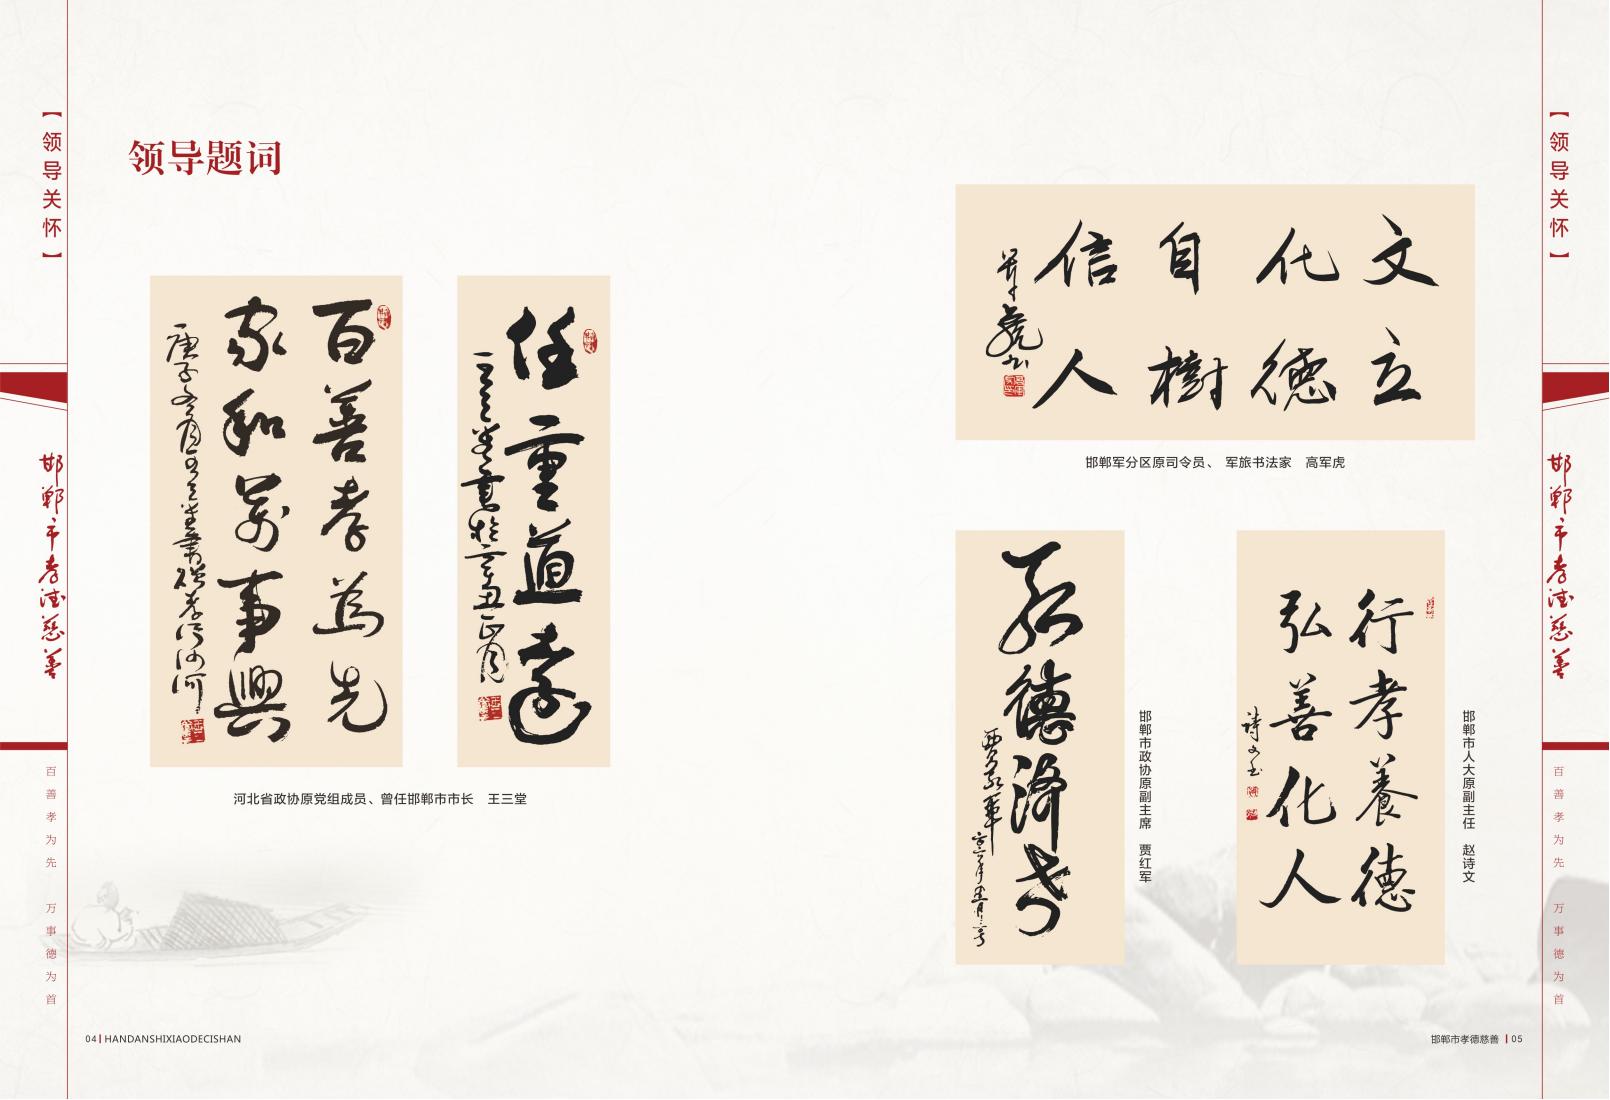 【领导关怀】
邯郸市孝德慈善
百善孝为先 万事德为首
领导题词
百善孝為先
家和萬事興
任重道遠
河北省政协原党组成员、曾任邯郸市市长 王三堂
04 HANDANSHIXIAODECISHAN
文立
化德
自樹
信人
邯郸军分区原司令员、 军旅书法家 高军虎
邯郸市政协原副主席 贾红军
行孝養德
弘善化人
诗文书
邯郸市人大原副主任 赵诗文
【领导关怀】
邯郸市孝德慈善
百善孝为先 万事德为首
邯郸市孝德慈善 05